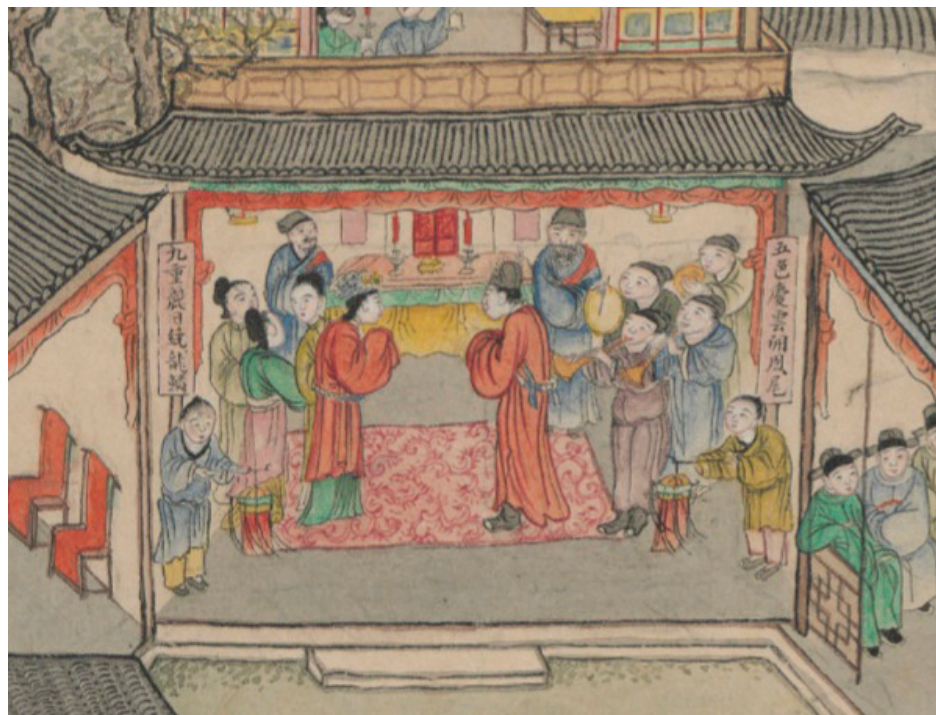 五色慶雲開鳳尾
九重麗日繞龍鱗